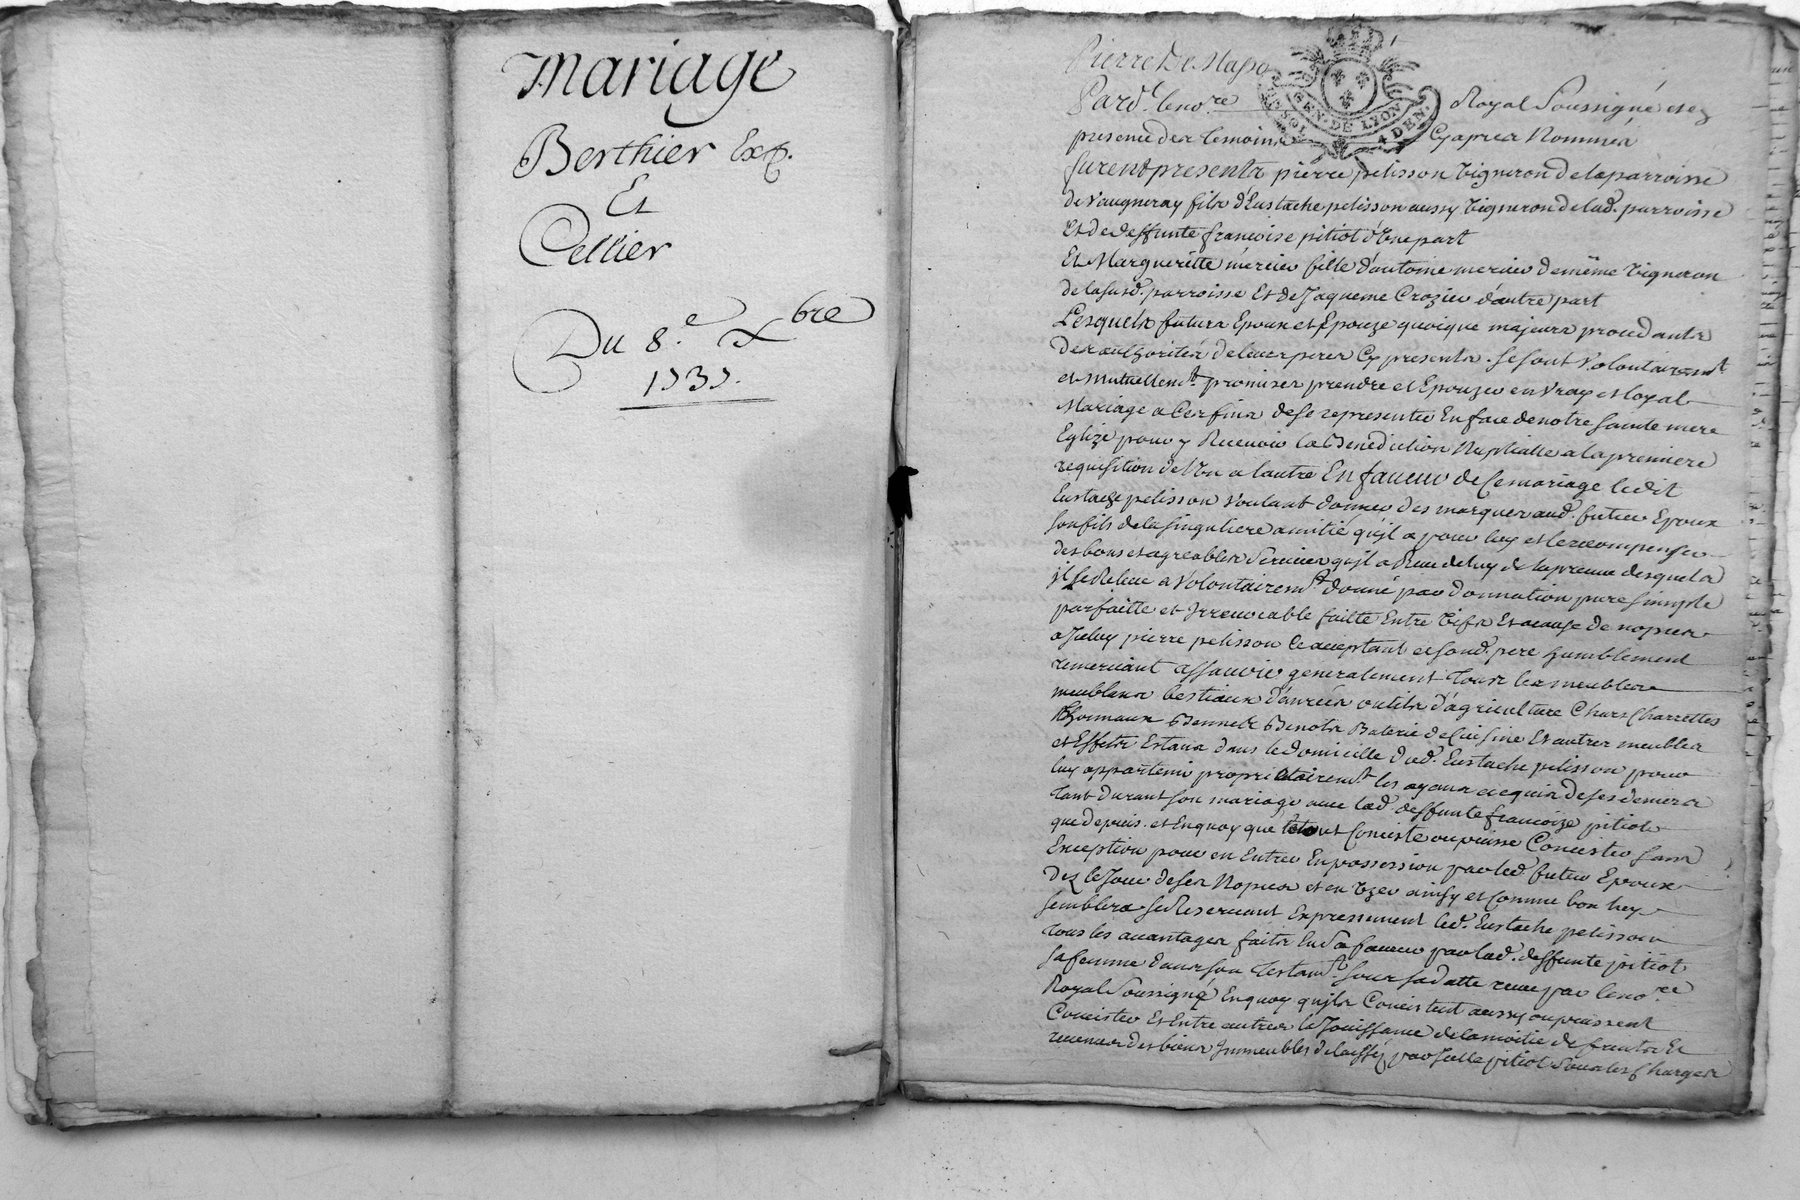 Mariage
Berthier Exp.
Et
Cellier
Du 8.e Xbre
1737.
GEN. DE LYON
4 DEN.
SOL
Pierre De
Pard.t le no.re Royal Soussigné et ez
presence des temoins Cy apres Nommés
furent presents pierre pelisson Vigneron de la parroisse
de Vaugneray fils d'Eustache pelisson aussy Vigneron de lad. parroisse
Et de deffunte francoise pitiot d'Une part
Et Margueritte mercier fille d'antoine mercier de même Vigneron
de la susd. parroisse Et de Jaqueme Crozier d'autre part
Lesquels futurs Epoux et Epouze quoique majeurs procedants
des authorités de leurs peres Cy presents. se sont Volontairem.t
et Mutuellem.t promis se prendre et Epouzer en Vray et loyal
Mariage a Ces fins de se representer En face de notre sainte mere
Eglize pour y Recevoir la Benediction Nuptialle a la premiere
requisition de l'Un a l'autre En faveur de Ce mariage ledit
Eustache pelisson Voulant donner des marques aud. futur Epoux
son fils de la singuliere amitié qu'jl a pour luy et le recompenser
des bons et agreables Services qu'jl a Reçu de luy de la preuve desquels
jl le Releve a Volontairem.t donné par donnation pure simple
parfaitte et Jrrevocable faitte Entre Vifs Et a cause de nopces
a Jceluy pierre pelisson Ce acceptant et sond. pere humblement
remerciant assavoir generalement tous les meubles
meublans bestiaux d'anrées outils d'agriculture Chars Charrettes
Thonneaux Bennes Benots Baterie de Cuisine Et autres meubles
et Effets Estans dans le domicille dud. Eustache pelisson pour
luy appartenir proprietairem.t les ayant acquis de ses deniers
tant durant son mariage avec lad. deffunte francoize pitiot
que depuis. et En quoy que le tout Conciste ou puisse Concister sans
Exception pour en Entrer En possession par led. futur Epoux
dez le Jour de ses Nopces et en Uzer ainsy et Comme bon luy
semblera se Reservant Expressement led. Eustache pelisson
tous les avantages faits En sa faveur par lad. deffunte pitiot
sa femme dans son testam.t sous sa datte receu par le no.re
Royal Soussigné En quoy qu'jls Concistent aussy ou puissent
Concister Et Entre autres la Jouissance de la moitié des fruits Et
revenus des biens Jmmeubles delaissés par Jcelle pitiot Sous les Charges